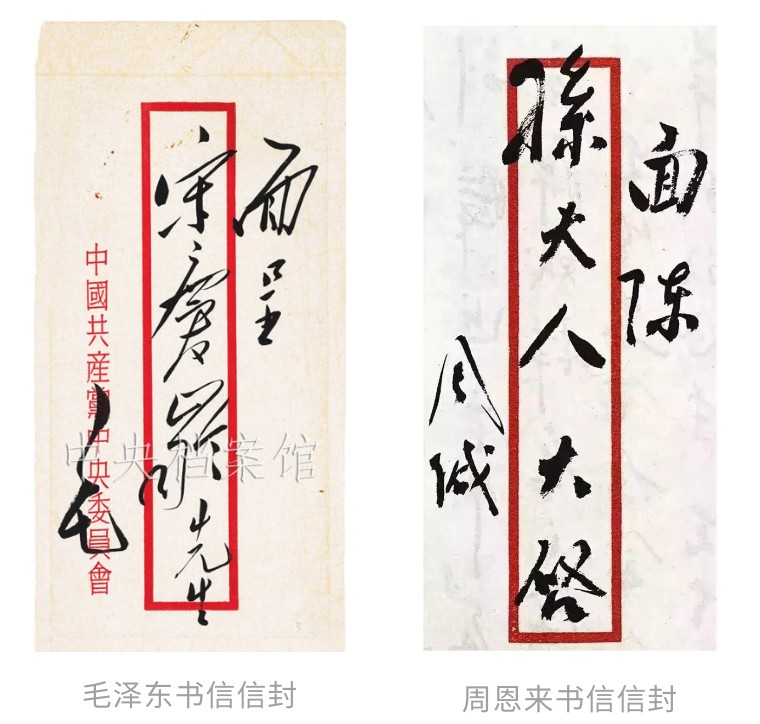 面呈
宋慶齡先生
中國共産黨中央委員會
毛
中央档案馆
毛泽东书信信封
面陈
孫夫人大啓
周缄
周恩来书信信封